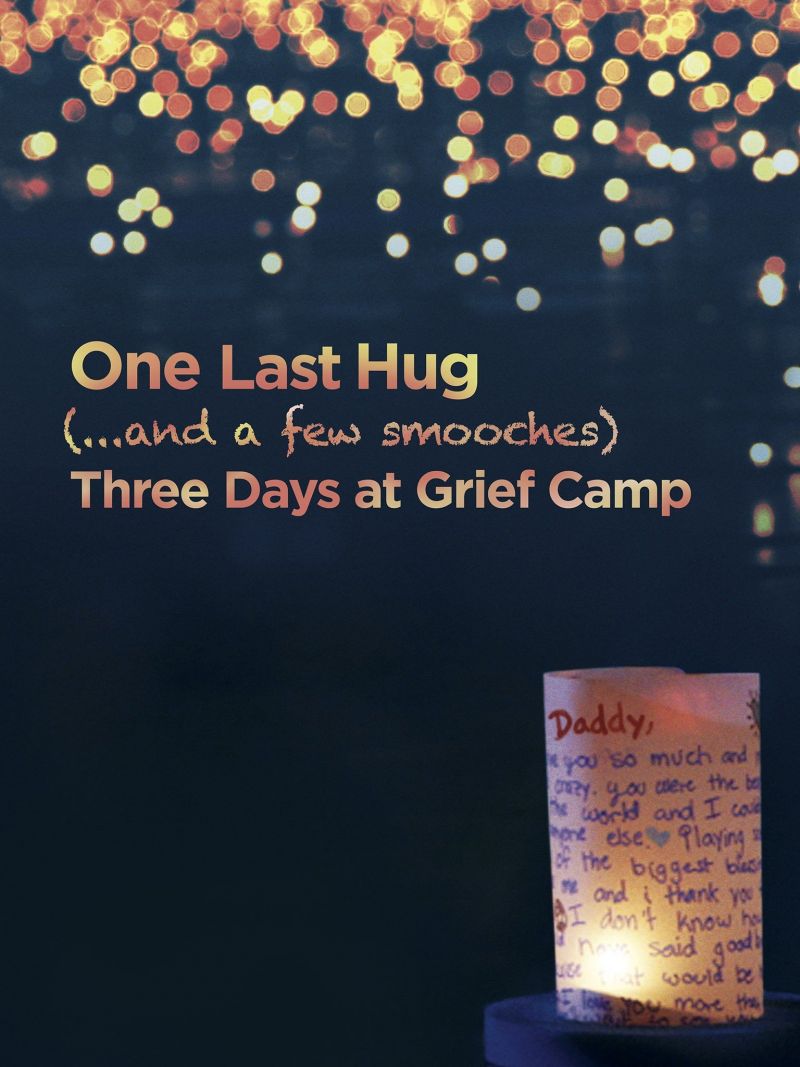 One Last Hug
(...and a few smooches)
Three Days at Grief Camp
Daddy,
you so much and
crazy. you were the
the world and I
else. Playing
of the biggest
me and i thank you
I don't know
have said
that would be
I love you more
to see you